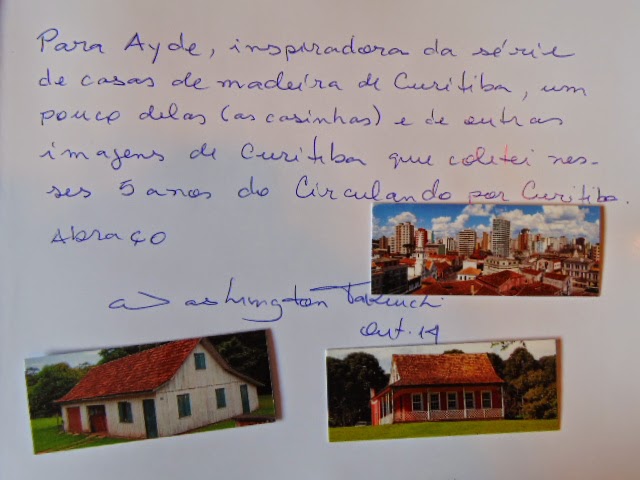 Para Ayde, inspiradora da série
de casas de madeira de Curitiba, um
pouco delas (as casinhas) e de outras
imagens de Curitiba que coletei nes-
ses 5 anos do Circulando por Curitiba.
Abraço
Washington Takeuchi
out. 14